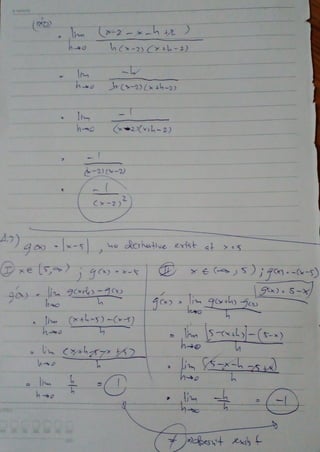 = lim h→0 (x-2-x-h+2) / h(x-2)(x+h-2)
= lim h→0 -h / h(x-2)(x+h-2)
= lim h→0 -1 / (x-2)(x+h-2)
= -1 / (x-2)(x-2)
= -1 / (x-2)²
g(x) = |x-5| , no derivative exist at x=5
I x ∈ [5,∞) ; g(x) = x-5
g'(x) = lim h→0 g(x+h)-g(x) / h
= lim h→0 (x+h-5)-(x-5) / h
= lim h→0 (x+h-5-x+5) / h
= lim h→0 h / h = 1
II x ∈ (-∞, 5) ; g(x) = -(x-5)
g(x) = 5-x
g'(x) = lim h→0 g(x+h)-g(x) / h
= lim h→0 [5-(x+h)]-(5-x) / h
= lim h→0 [5-x-h-5+x] / h
= lim h→0 -h / h = -1
≠ doesn't exist